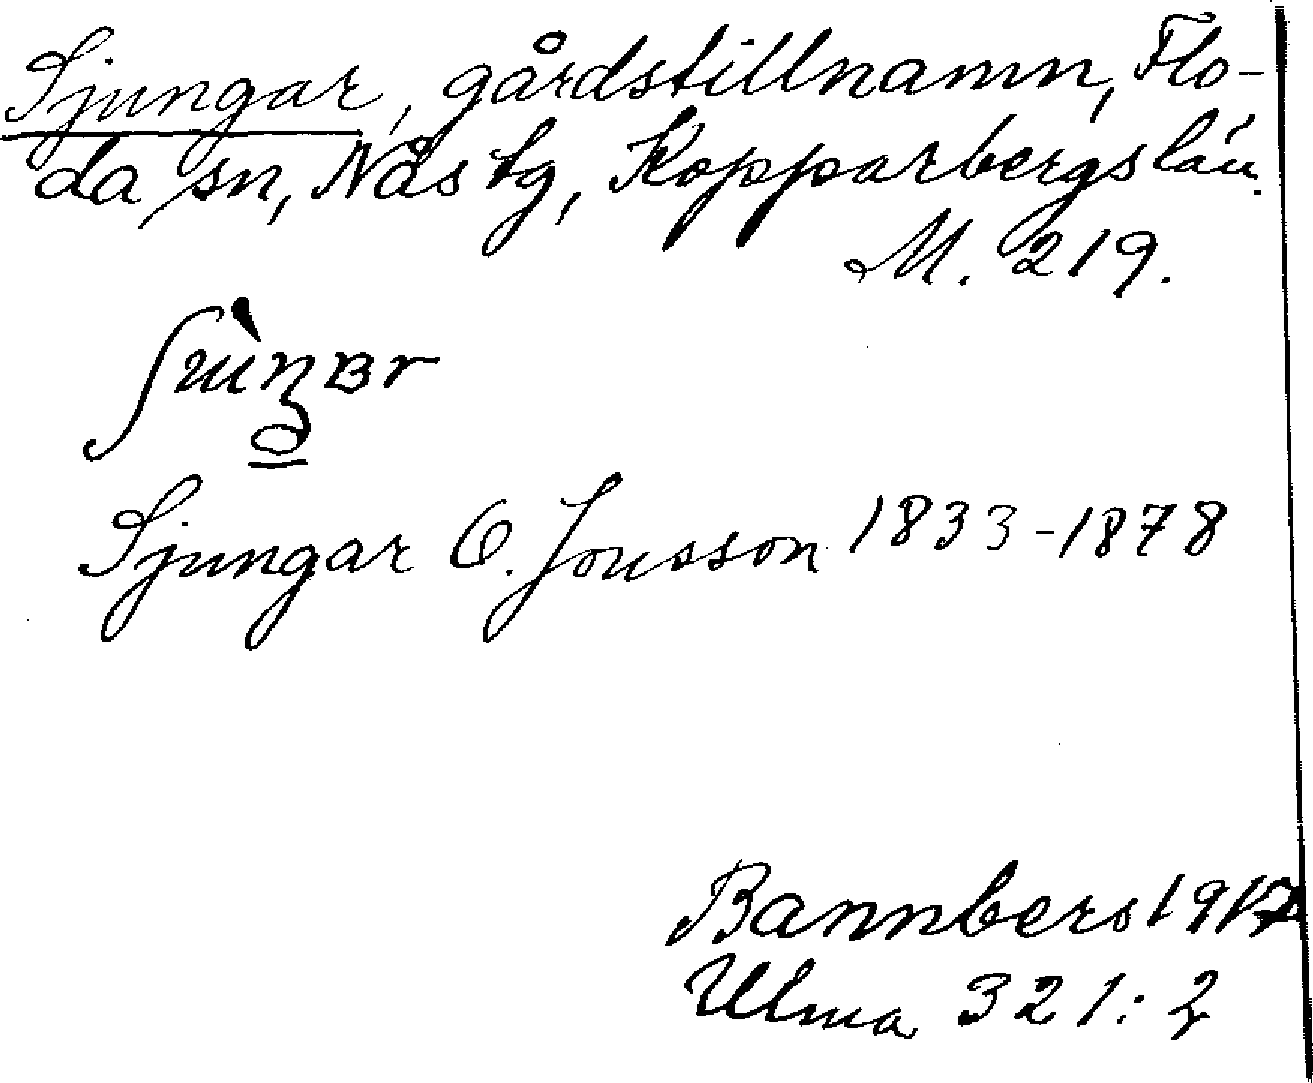 Sjungar, gårdstillnamn, Flo-
da sn, Nås tg, Kopparbergs län.
M. 219.
Sjungar O. Jonsson 1833-1878
Bannbers 1917
Ulma 321:2